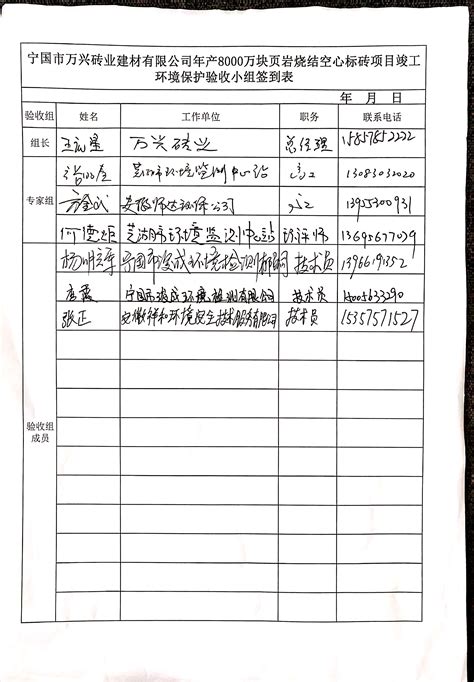 宁国市万兴砖业建材有限公司年产8000万块页岩烧结空心标砖项目竣工
环境保护验收小组签到表
年 月 日
验收组 姓名 工作单位 职务 联系电话
组长 万兴砖业 总经理
芜湖市环境监测中心站 高工 13083032020
专家组 安徽师达环保公司 高工 13955300931
何德炬 芜湖市环境监测中心站 环评师 13695677029
杨明 技术员
宁国市浚成环境检测有限公司 技术员 18005633290
张正 安徽祥和环境安全技术服务有限公司 技术员 15357571527
验收组
成员